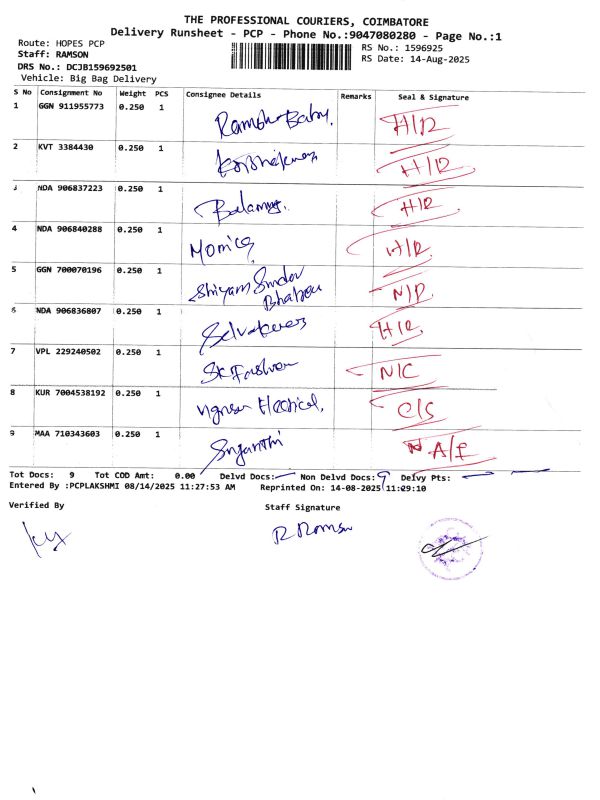 THE PROFESSIONAL COURIERS, COIMBATORE
Delivery Runsheet - PCP - Phone No.:9047080280 - Page No.:1
Route: HOPES PCP
RS No.: 1596925
Staff: RAMSON
RS Date: 14-Aug-2025
DRS No.: DCJB159692501
Vehicle: Big Bag Delivery
S No Consignment No Weight PCS Consignee Details Remarks Seal & Signature
1 GGN 911955773 0.250 1 Baby. H/R
2 KVT 3384430 0.250 1 H/R
3 NDA 906837223 0.250 1 H/R
4 NDA 906840288 0.250 1 Monica H/R
5 GGN 700070196 0.250 1 Shiyam N/D
6 NDA 906836807 0.250 1 H/R
7 VPL 229240502 0.250 1 SK N/C
8 KUR 7004538192 0.250 1 C/S
9 MAA 710343603 0.250 1 A/F
Tot Docs: 9 Tot COD Amt: 0.00 Delvd Docs: Non Delvd Docs: 9 Delvy Pts:
Entered By :PCPLAKSHMI 08/14/2025 11:27:53 AM Reprinted On: 14-08-2025 11:29:10
Verified By Staff Signature